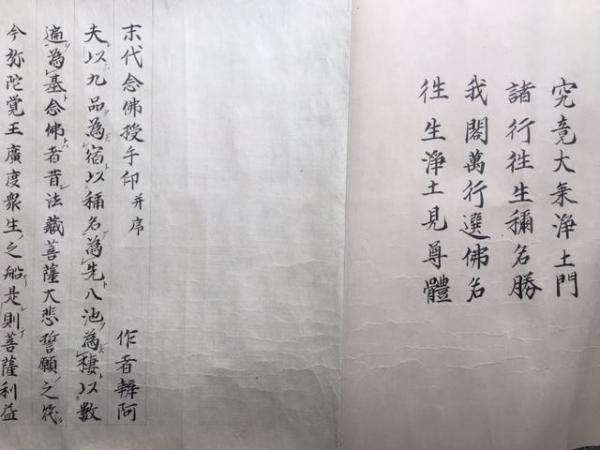 究竟大乗淨土門
諸行徃生稱名勝
我閣萬行選佛名
徃生淨土見尊體
末代念佛授手印 并序 作者辯阿
夫以九品為宿以稱名為先八池為棲以數
遍為基念佛者昔法藏菩薩大悲誓願之筏
今弥陀覚王廣度衆生之船是則菩薩利益